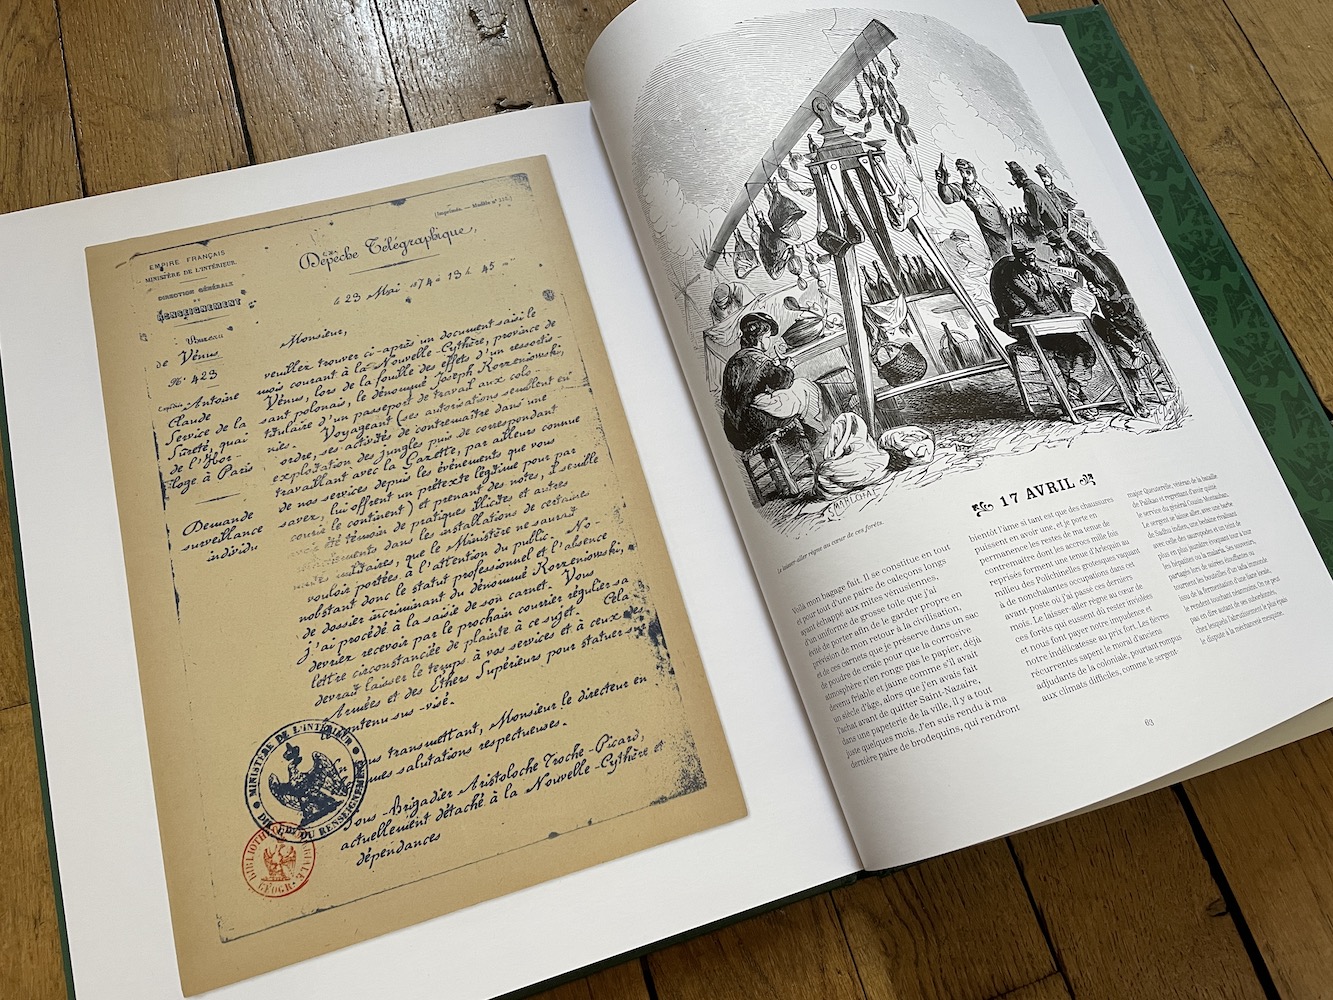 EMPIRE FRANÇAIS
MINISTÈRE DE L'INTÉRIEUR.
DIRECTION GÉNÉRALE
RENSEIGNEMENT
Bureau
de Vénus
N° 423
Antoine
Claude
Service de la
Sûreté, quai
de l'Hor-
loge à Paris
Demande
surveillance
individu
Dépêche Télégraphique,
le 23 Mai 1874 à 13 h 45
Monsieur,
veuillez trouver ci-après un document saisi le
mois courant à la Nouvelle-Cythère, province de
Vénus, lors de la fouille des effets d'un ressortis-
sant polonais, le dénommé Joseph Korzeniowski,
titulaire d'un passeport de travail aux colo-
nies. Voyageant (ses autorisations semblent en
ordre, ses activités de contremaître dans une
exploitation des jungles puis de correspondant
travaillant avec la Gazette, par ailleurs connue
de nos services depuis les événements que vous
savez, lui offrent un prétexte légitime pour par
courir le continent) et prenant des notes, il semble
avoir été témoin de pratiques illicites et autres
dans les installations de certaines
militaires, que le Ministère ne saurait
vouloir portées à l'attention du public. No-
nobstant donc le statut professionnel et l'absence
de dossier incriminant du dénommé Korzeniowski,
j'ai procédé à la saisie de son carnet. Vous
devriez recevoir par le prochain courrier régulier sa
lettre circonstanciée de plainte à ce sujet. Cela
devrait laisser le temps à vos services et à ceux
Armées et des Ethers Supérieurs pour statuer sur
contenu sus-visé.
transmettant, Monsieur le directeur en
salutations respectueuses.
Sous-Brigadier Aristoloche Troche-Picard,
actuellement détaché à la Nouvelle-Cythère et
dépendances
MINISTÈRE DE L'INTÉRIEUR
DU RENSEIGNEMENT
GÉOGR.
Le laisser-aller règne au cœur de ces forêts.
17 AVRIL
Voilà mon bagage fait. Il se constitue en tout
et pour tout d'une paire de caleçons longs
ayant échappé aux mites vénusiennes,
d'un uniforme de grosse toile que j'ai
évité de porter afin de le garder propre en
prévision de mon retour à la civilisation,
et de ces carnets que je préserve dans un sac
de poudre de craie pour que la corrosive
atmosphère n'en ronge pas le papier, déjà
devenu friable et jaune comme s'il avait
un siècle d'âge, alors que j'en avais fait
l'achat avant de quitter Saint-Nazaire,
dans une papeterie de la ville, il y a tout
juste quelques mois. J'en suis rendu à ma
dernière paire de brodequins, qui rendront
bientôt l'âme si tant est que des chaussures
puissent en avoir une, et je porte en
permanence les restes de ma tenue de
contremaître dont les accrocs mille fois
reprisés forment une tenue d'Arlequin au
milieu des Polichinelles grotesques vaquant
à de nonchalantes occupations dans cet
avant poste où j'ai passé ces derniers
mois. Le laisser-aller règne au cœur de
ces forêts qui eussent dû rester inviolées
et nous font payer notre impudence et
notre indélicatesse au prix fort. Les fièvres
récurrentes sapent le moral d'anciens
adjudants de la coloniale, pourtant rompus
aux climats difficiles, comme le sergent-
major Queuterelle, vétéran de la bataille
de Palikao et regrettant d'avoir quitté
le service du général Cousin Montauban.
Le sergent se laisse aller, avec une barbe
de Sadhu indien, une bedaine rivalisant
avec celle des sauropodes et un teint de
qui en plus jaunâtre évoquant tour à tour
les hépatites ou la malaria. Ses souvenirs,
partagés lors de soirées étouffantes où
tournent les bouteilles d'un rafia immonde
issu de la fermentation d'une liane locale,
le rendent souvent larmoyant. On ne peut
pas en dire autant de ses subordonnés,
chez lesquels l'abrutissement le plus épais
le dispute à la méchanceté mesquine.
63